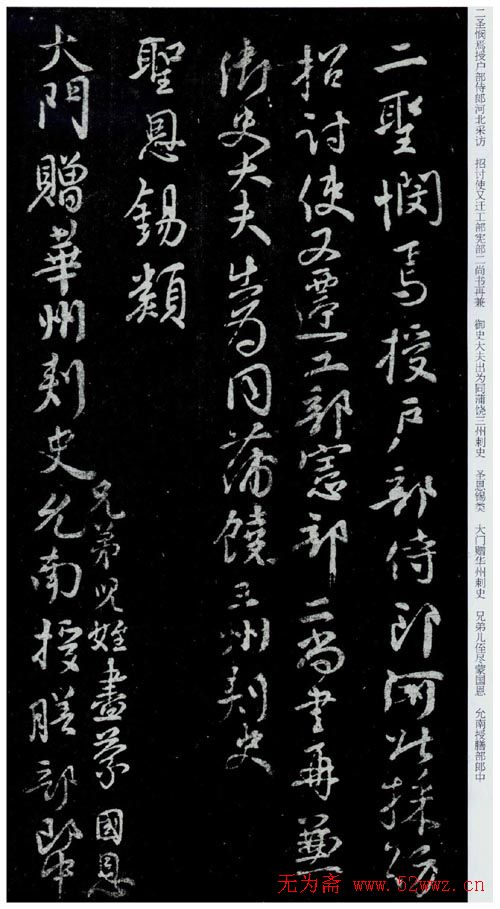 二聖憫焉授戶部侍郎河北採訪
招討使又遷工部憲部二尚書再兼
御史大夫出为同蒲饒三州刺史
聖恩錫類
大門贈華州刺史允南授膳部郎中
兄弟児姪盡蒙國恩
二圣悯焉授户部侍郎河北采访 招讨使又迁工部宪部二尚书再兼 御史大夫出为同蒲饶三州刺史 圣恩锡类 大门赠华州刺史 兄弟儿侄尽蒙国恩 允南授膳部郎中
无为斋 www.52wwz.cn